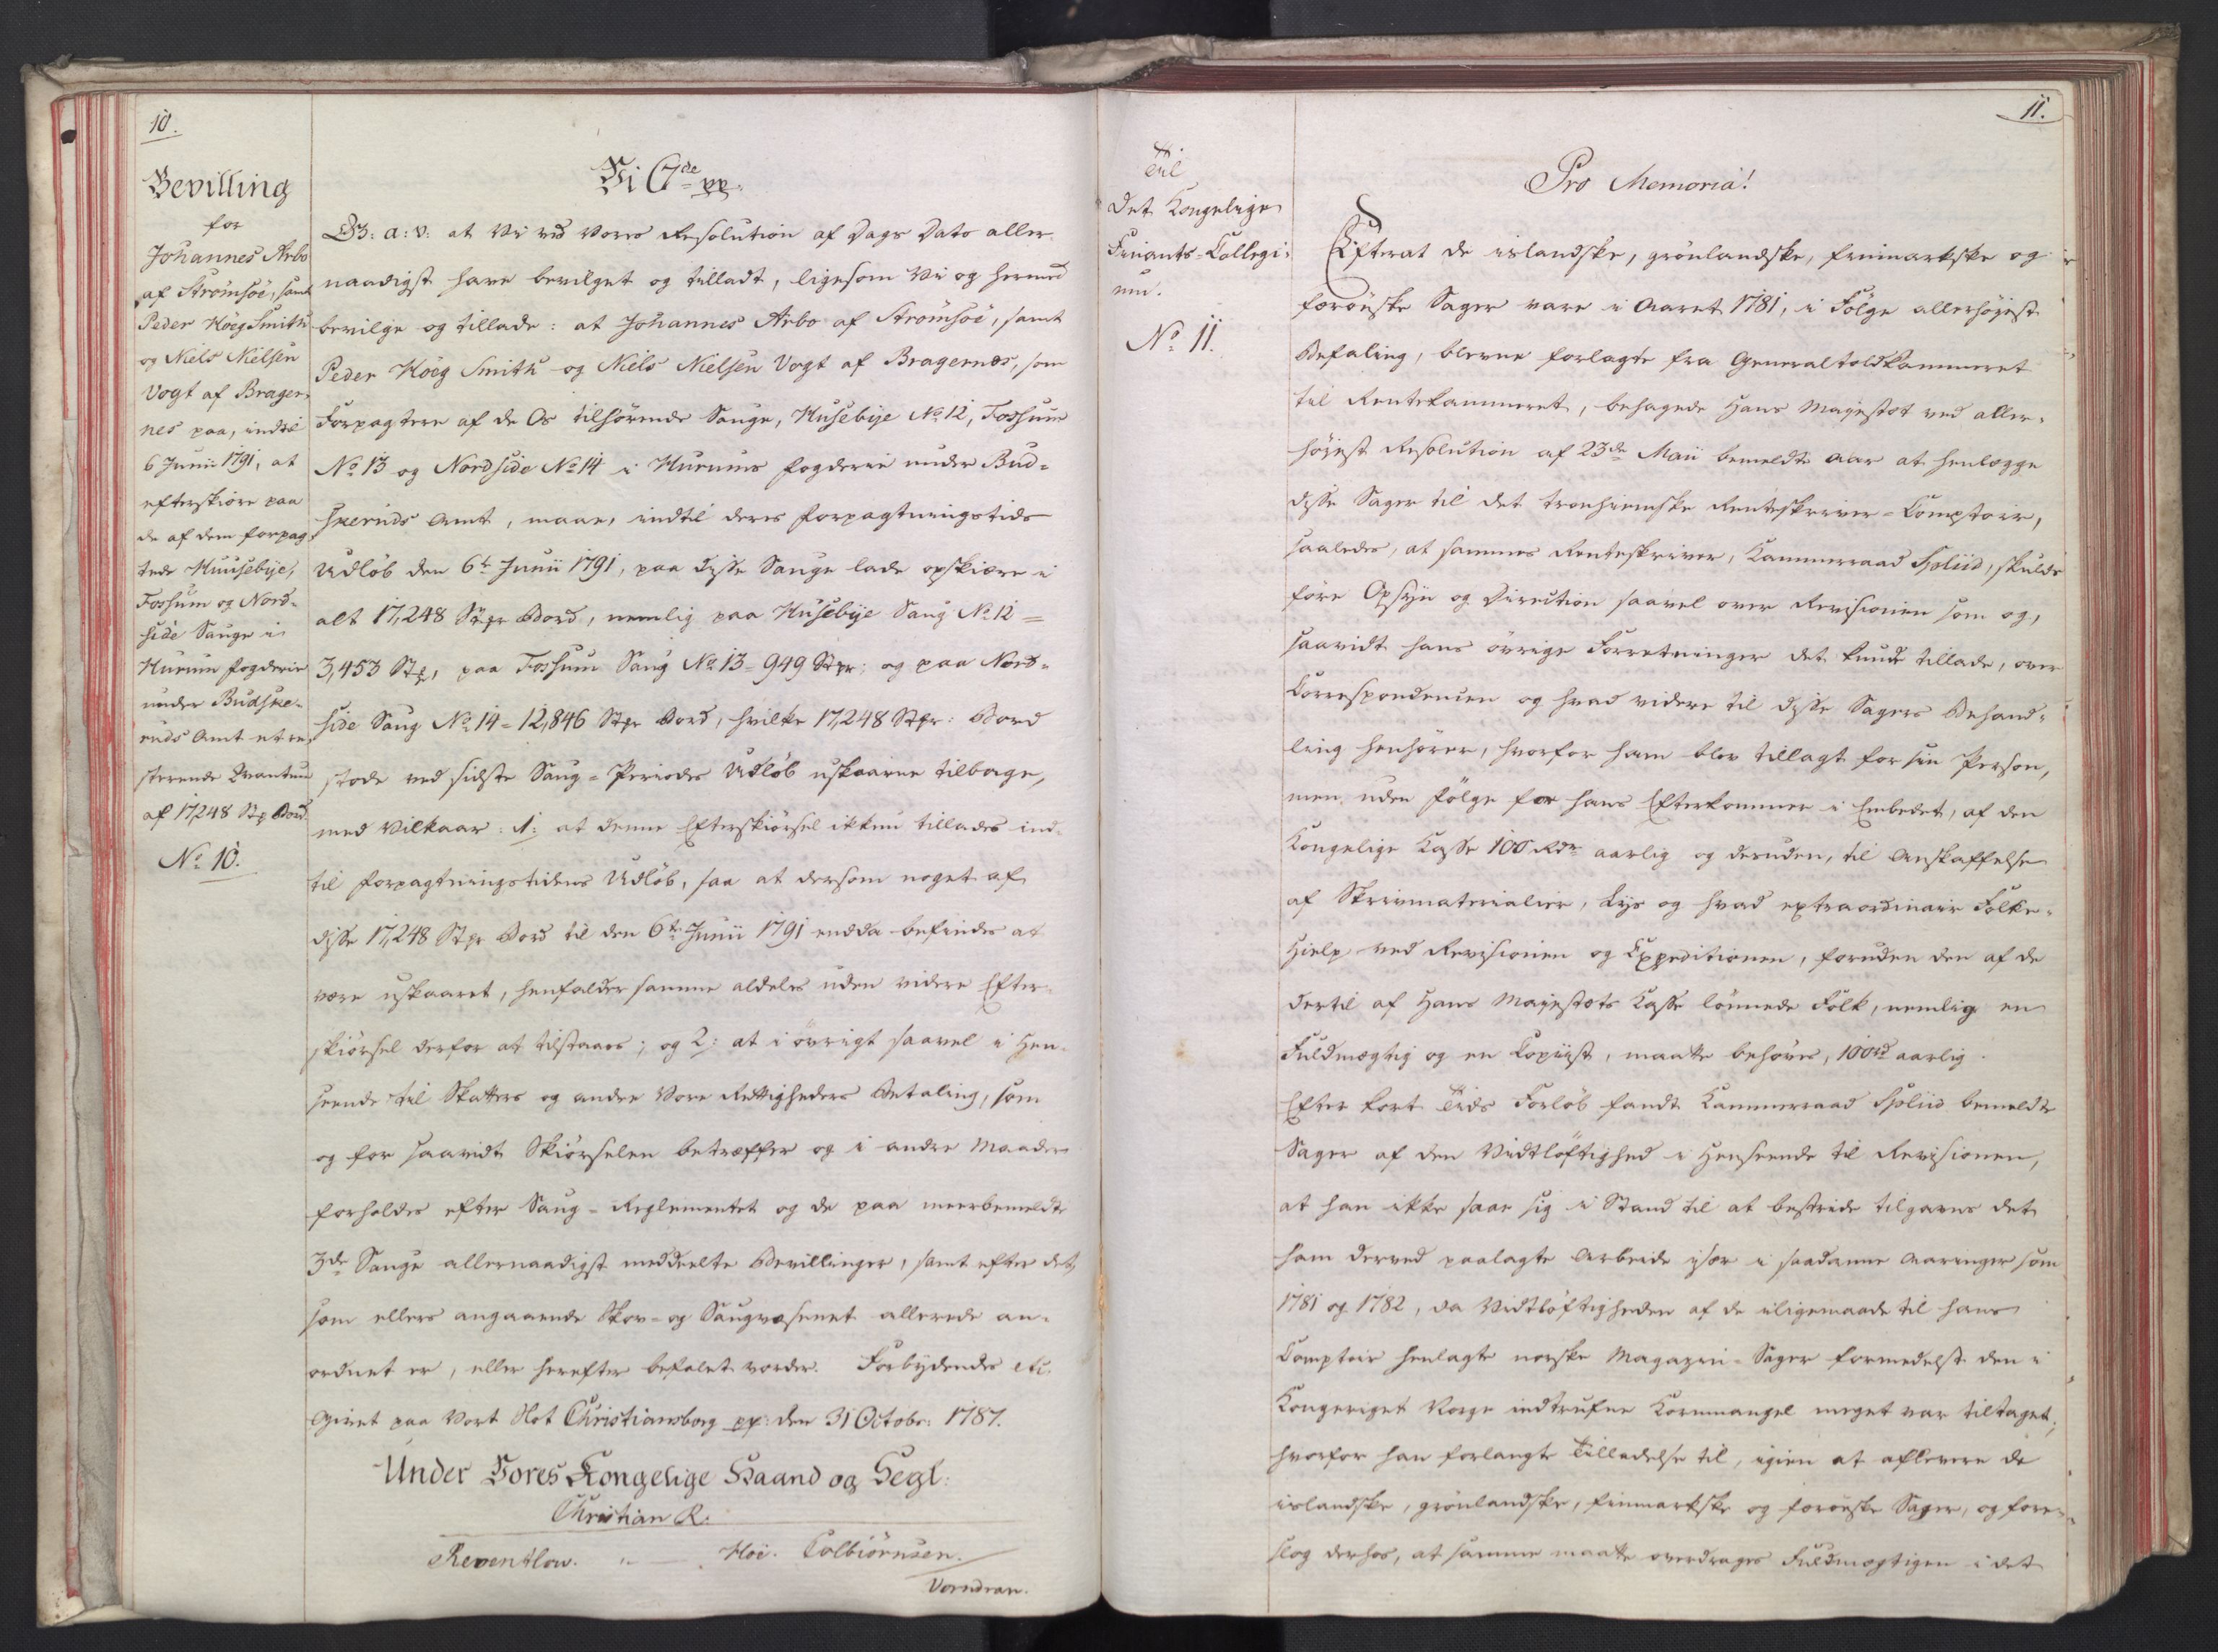 10.
Bevilling
for
Johannes Arbo
af Strömsöe, samt
Peder Höeg Smith
og Niels Nielsen
Vogt af Brager-
nes paa, indtil
6 Junii 1791, at
efterskiöre paa
de af dem forpag-
tede Huusebije,
Fossum og Nord-
side Sauge i
Hurum fogderie
under Budske-
ruds Amt et re-
sterende Qvantum
af 17,248 Stp Bord.
No 10.
Vi C 7de pp.
G: a: v: at Vi ved Vores Resolution af Dags Dato aller-
naadigst have bevilget og tilladt, ligesom Vi og hermed
bevilge og tillade: at Johannes Arbo af Strömsöe, samt
Peder Höeg Smith og Niels Nielsen Vogt af Bragernæs, som
Forpagtere af de Os tilhörende Sauge, Husebije No 12, Fossum
No 13 og Nordside No 14 i Hurums fogderie under Bud-
skeruds Amt, maae, indtil deres forpagtningstids
Udlöb den 6te Junii 1791, paa disse Sauge lade opskiære i
alt 17,248 Stpr Bord, nemlig paa Husebije Saug No 12 =
3,453 Stp, paa Fossum Saug No 13 - 949 Stpr: og paa Nord-
side Saug No 14 - 12,846 Stpr Bord, hvilke 17,248 Stpr: Bord
stode ved sidste Saug-Periodes Udlöb uskaarne tilbage,
med Vilkaar: 1: at denne Efterskiörsel ikkun tillades ind-
til forpagtningstidens Udlöb, saa at dersom noget af
disse 17,248 Stpr Bord til den 6te Junii 1791 endda befindes at
være uskaaret, henfalder samme aldeles uden videre Efter-
skiörsel derfor at tilstaaes; og 2: at i övrigt saavel i Hen-
seende til Skatters og andre Vore Rettigheders Betaling, som
og for saavidt Skiörselen betræffer og i andre Maader
forholdes efter Saug-Reglementet og de paa meerbemeldte
3de Sauge allernaadigst meddeelte Bevillinger, samt efter det
som ellers angaaende Skov- og Saugvæsenet allerede an-
ordnet er, eller herefter befalet vorder. Forbydendes etc.
Givet paa Vort Slot Christiansborg pp: den 31 Octobr: 1787.
Under Vores Kongelige Haand og Segl:
Christian R.
Reventlow. Hoë. Colbiörnsen.
Vorndran.
11.
Til
Det Kongelige
Finants-Collegi-
um.
No 11.
Pro Memoria!
Efterat de islandske, grönlandske, finmarkske og
færöeske Sager vare i Aaret 1781, i Fölge allerhöjest
Befaling, blevne forlagte fra Generaltoldkammeret
til Rentekammeret, behagede Hans Majestæt ved aller-
höjest Resolution af 23de Maii bemeldte Aar at henlægge
disse Sager til det tronhiemske Renteskriver-Comptoir,
saaledes, at sammes Renteskriver, Kammerraad Spliid, skulde
före Opsyn og Direction saavel over Revisionen som og,
saavidt hans övrige Forretninger det kunde tillade, over
Correspondencen og hvad videre til disse Sagers Behand-
ling henhörer, hvorfor ham blev tillagt for sin Person,
men uden fölge for hans Efterkommer i Embedet, af den
Kongelige Casse 100 Rdr aarlig og desuden, til Anskaffelse
af Skrivmaterialier, Lys og hvad extraordinair Folke-
Hielp ved Revisionen og Expeditionen, foruden den af de
dertil af Hans Majestæts Casse lönnede Folk, nemlig en
Fuldmægtig og en Copiist, maatte behöves, 100rd aarlig.
Efter kort Tids Forlöb fandt Kammerraad Spliid bemeldte
Sager af den Vidtlöftighed i Henseende til Revisionen,
at han ikke saae sig i Stand til at bestride tilgavns det
ham derved paalagte Arbeide især i saadanne Aaringer som
1781 og 1782, da Vidtlöftigheden af de iligemaade til hans
Comptoir henlagte norske Magazin-Sager formedelst den i
Kongeriget Norge indtrufne Kornmangel meget var tiltaget;
hvorfor han forlangte Tilladelse til, igien at aflevere de
islandske, grönlandske, finmarkske og færöeske Sager, og fore-
slog derhos, at samme maatte overdrages Fuldmægtigen i det